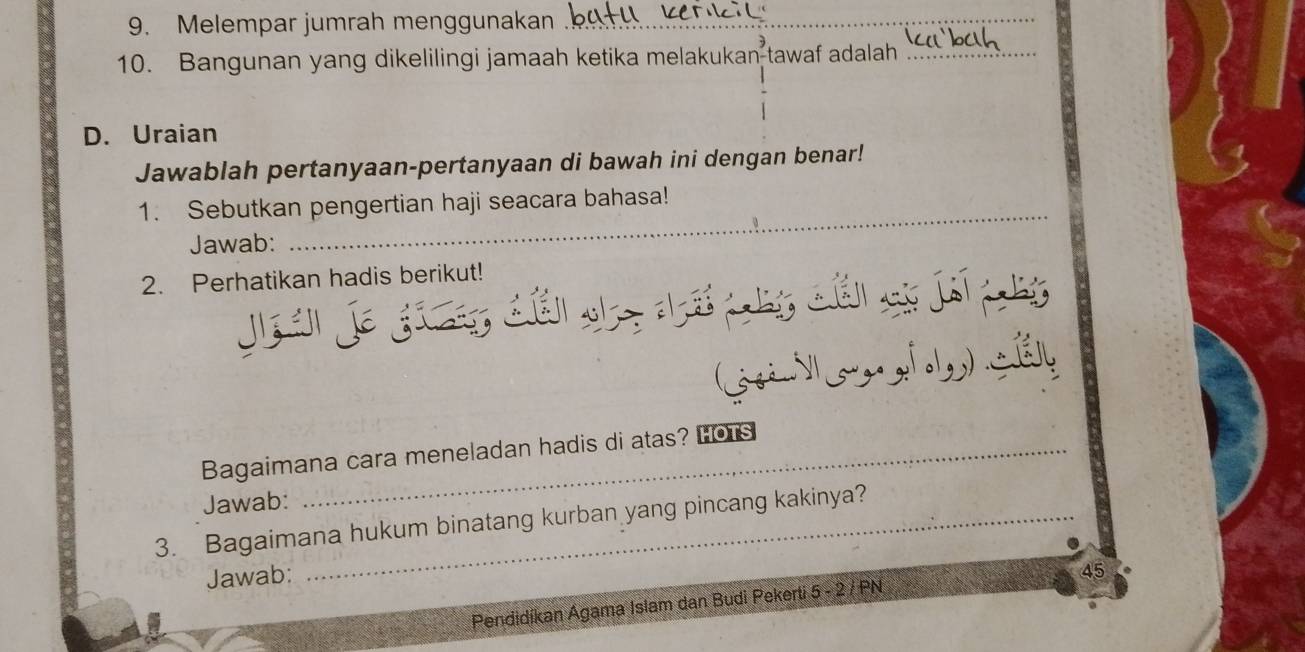 9. Melempar jumrah menggunakan batu kerikil
10. Bangunan yang dikelilingi jamaah ketika melakukan tawaf adalah ka'bah
D. Uraian
Jawablah pertanyaan-pertanyaan di bawah ini dengan benar!
1. Sebutkan pengertian haji seacara bahasa!
Jawab:
2. Perhatikan hadis berikut!
وَيُطْعِمُ أَهْلَ بَيْتِهِ الثُّلُثَ وَيُطْعِمُ فُقَرَاءَ جِرَانِهِ الثُّلُثَ وَيَتَصَدَّقُ عَلَى السُّؤَالِ
بِالثُّلُثِ. (رواه أبو موسى الأسفهني)
Bagaimana cara meneladan hadis di atas? HOTS
Jawab:
3. Bagaimana hukum binatang kurban yang pincang kakinya?
Jawab:
45
Pendidikan Agama Islam dan Budi Pekerti 5 - 2 / PN